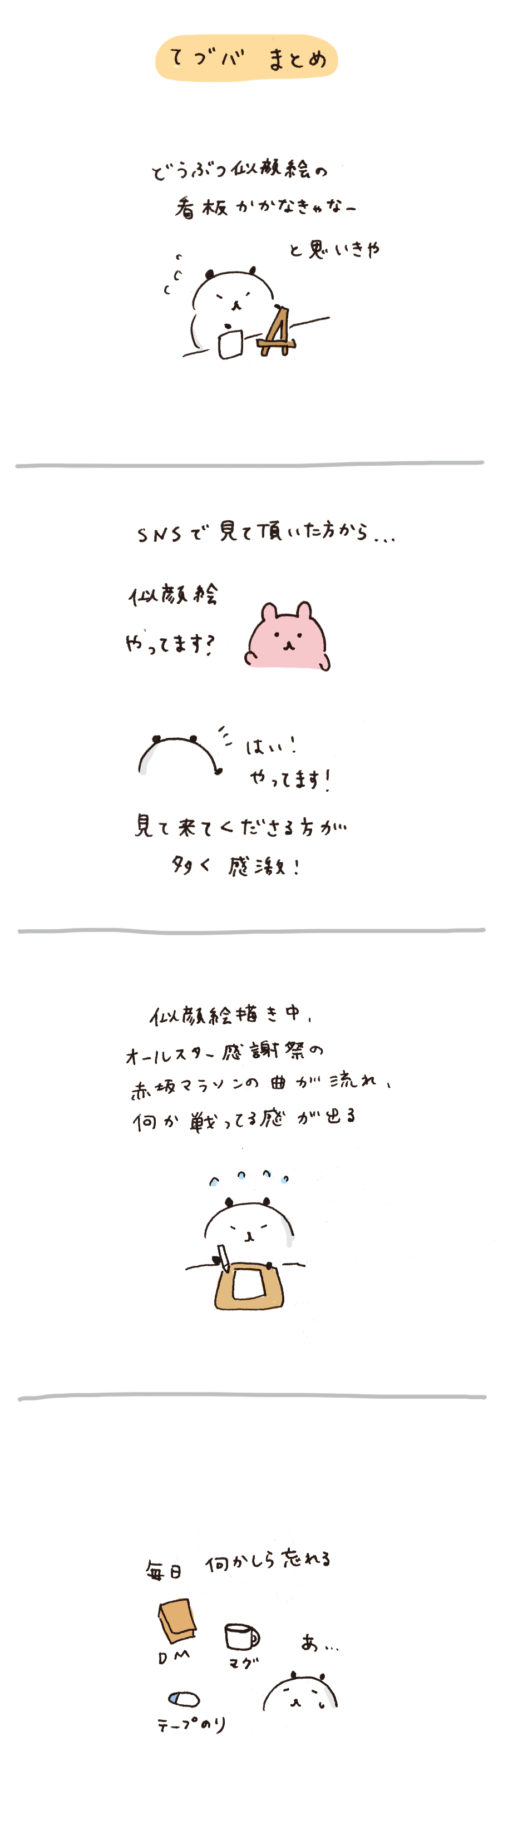 てづバ まとめ
どうぶつ似顔絵の
看板かかなきゃなー
と思いきや
SNSで見て頂いた方から...
似顔絵
やってます?
はい!
やってます!
見て来てくださる方が
多く感激!
似顔絵描き中、
オールスター感謝祭の
赤坂マラソンの曲が流れ、
何か戦ってる感が出る
毎日 何かしら忘れる
DM
マグ
あ...
テープのり